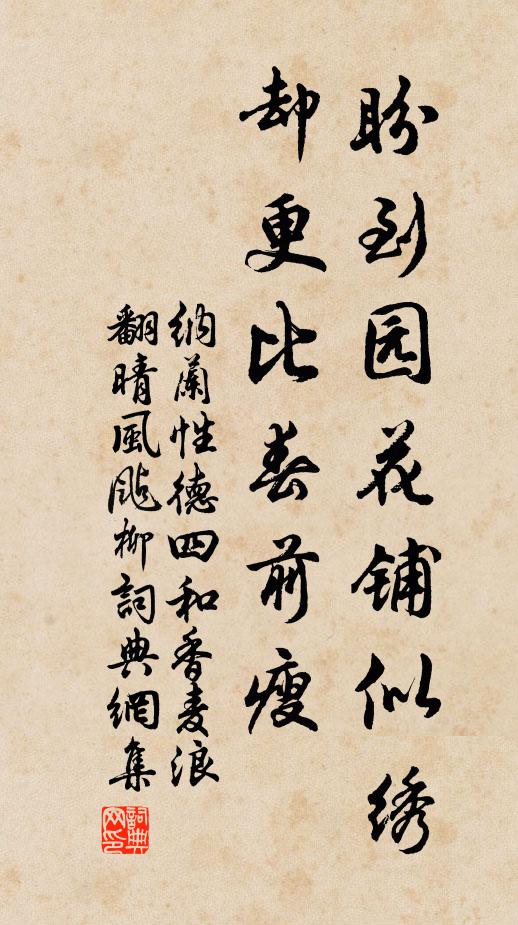 盼到园花铺似绣
却更比春前瘦
纳蘭性德四和香麦浪
翻晴風颭柳詞典網集
詞典
网印